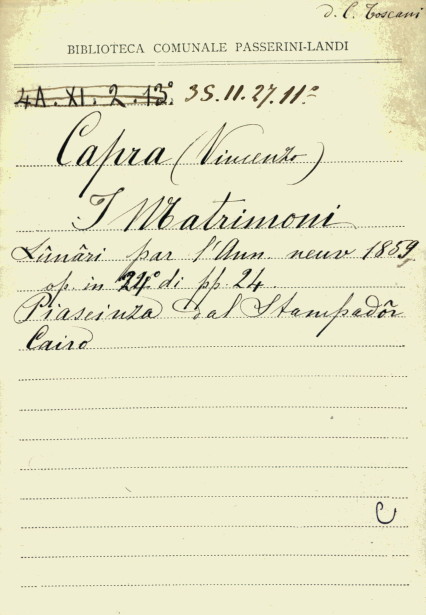 d. C. Toscani
BIBLIOTECA COMUNALE PASSERINI-LANDI
4A. XI. 2. 13.° 3S. II. 27. 11.°
Capra (Vincenzo)
I Matrimoni
Lûnâri par l'Ann. neuv 1859,
op. in 24° di pp. 24.
Piaseinza dal Stampadôr
Cairo
C